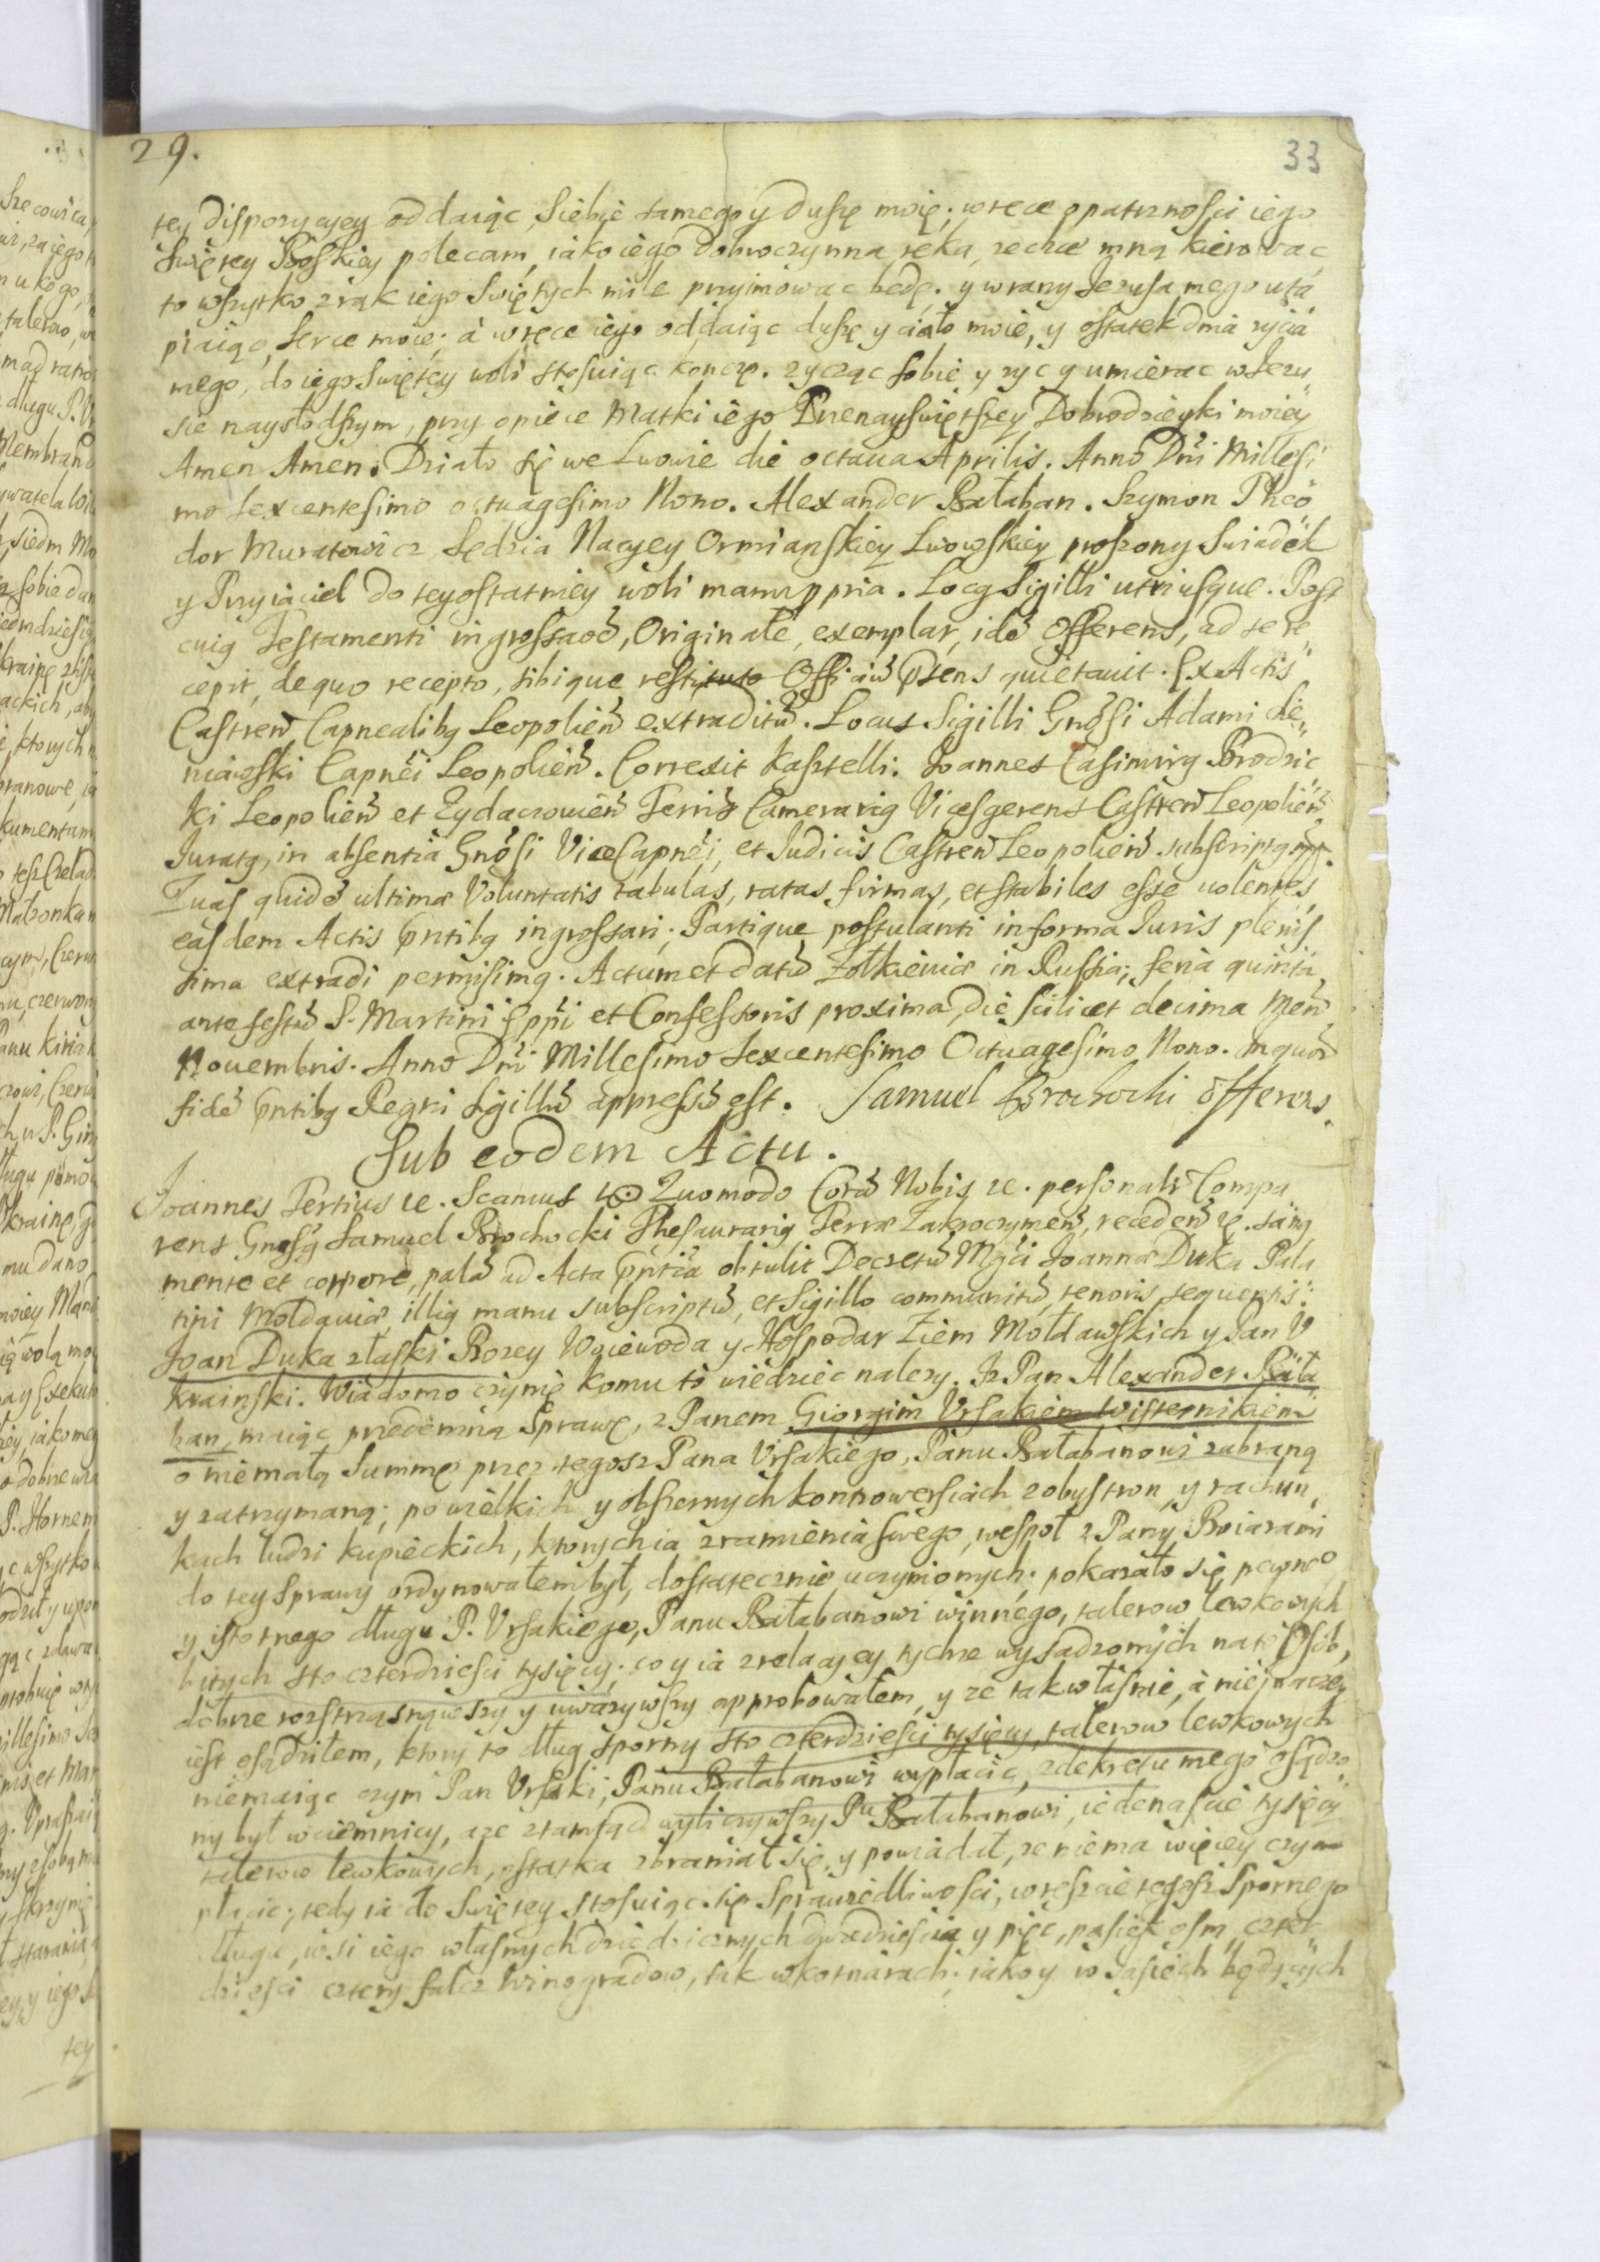 29.
33
tey dispozycyey oddaiąc, Siebie samego y Duszę moię, w ręce opatrznosci iego
Swiętey Boskiey polecam, iako iego dobroczynna ręka, zechce mną kierowac,
to wszystko z rąk iego Swiętych mile przyimowac będę. y w rany Jezusa mego uta
piaiąc, Serce moie; à w ręce iego oddaiąc duszę y ciało moie, y ostatek dnia zycia
mego, do iego Swiętey woli stosuiąc konczę. zycząc sobie y zyc y umierac w Jezu„
sie naysłodszym, przy opiece Matki iego Przenayswiętszey Dobrodzieyki moiey
Amen Amen. Działo się we Lwowie die octaua Aprilis. Anno Dñi Millesi
mo sexcentesimo octuagesimo Nono. Alexander Bałaban. Szymon Theo
dor Muratowicz Sędzia Nacyey Ormianskiey Lwowskiey proszony Swiadek
y Przyiaciel do tey ostatniey woli manu ppria. Locg Sigilli utriusque. Post
cuig Testamenti ingrossaõe, Originale, exemplar, idẽ Offerens, ad se re„
cepit, de quo recepto, sibique restituto Officiũ pñens quietauit. Ex Actis
Castren Capnealibg Leopolien extraditũ. Locus Sigilli Gnõsi Adami Sie„
niawski Capnei Leopolien. Correxit Kasztelli. Joannes Casimirg Brodzic
ki Leopolien et Zydaczowien Terris Camerarig Vicesgerens Castren Leopolien
Juratg, in absentia Gnõsi ViceCapnei, et Judicis Castren Leopolien subscriptg mp.
Quas quidẽ ultimæ Voluntatis tabulas, ratas, firmas, et stabiles esse uolentes,
easdem Actis pñtibg ingrossari; Partique postulanti in forma Juris plenis
sima extradi permisimg. Actum et datũ Zołkieuiæ in Russia; feria quinta
ante festũ S. Martini Eppi et Confessoris proxima, die scilicet decima Men
Nouembris. Anno Dñi Millesimo Sexcentesimo Octuagesimo Nono. In quor
fidẽ pñtibg Regni Sigillũ appressũ est. Samuel Brochocki offerens.
Sub eodem Actu.
Joannes Tertius &c. Scamus Quomodo Corã Nobis &c. personalr Compa
rens Gnosg Samuel Brochocki Thesaurarig Terræ Zakroczymen, receden &c. sang
mente et corpore, palã ad Acta pñtia obtulit Decretũ Mgci Joannæ Duka Pala
tini Moldauiæ, illig manu subscriptũ, et Sigillo communitũ, tenoris sequentis:
Joan Duka z łaski Bozey Woiewoda y Hospodar Ziem Mołdawskich y Pan V
krainski. Wiadomo czynię komu to wiedziec nalezy. Iz Pan Alexander Bała
ban, maiąc przedemną Sprawę, z Panem Giorgim Vrsakiem Wisternikiem
o niemałą Summę przez tegosz Pana Vrsakiego, Panu Bałabanowi zabraną
y zatrzymaną; po wielkich y obszernych kontrowersiach z obu stron, y rachun„
kach ludzi kupieckich, ktorych ia z ramienia swego, wespoł z Pany Boiarami
do tey Sprawy ordynowałem był, dostatecznie uczynionych; pokazało się pewne°
y istotnego długu P. Vrsakiego, Panu Bałabanowi winnego, talerow lewkowych
bitych sto czterdziesci tysięcy; co y ia z relacyey tychze wysadzonych na to Osob,
dobrze rozstrząsnąwszy y uwazywszy approbowałem, y ze tak własnie, à nie inaczey
iest osądziłem, ktory to dług sporny sto czterdziesci tysięcy, talerow lewkowych
niemaiąc czym Pan Vrsaki, Panu Bałabanowi wypłacic, z dekretu mego osądzo
ny był w ciemnicy, aze ztamtąd wyliczywszy Pu Bałabanowi, iedenascie tysięcy
talerow lewkowych, ostatka zbraniał się, y powiadał, ze niema więcey czym
płacic; tedy ia do Swiętey stosuiąc się Sprawiedliwosci, w reszcie tegosz Spornego
długu, wsi iego własnych dziedzicznych dwadziescia y pięc, pasiek osm, czter
dziesci cztery falcz Winogradow, tak w Kotnarach, iako y w Jasiech będących